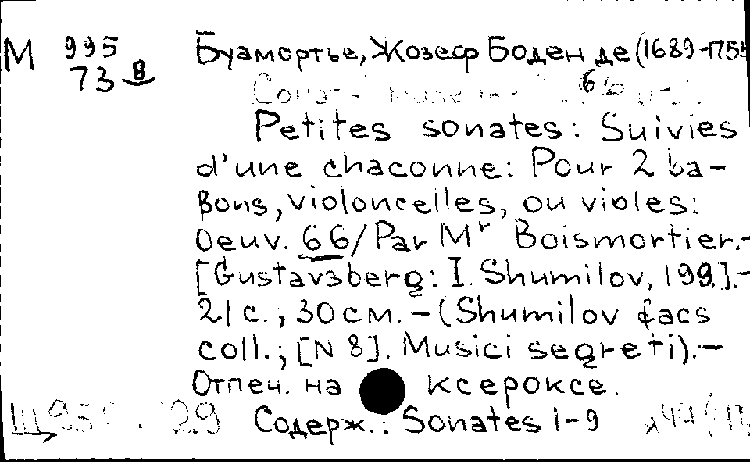 М 995 Буамортье, Жозеф Боден де (1689-1755
73 в
Petites sonates: Suivies
d'une chaconne: Pour 2 ba-
sons, violoncelles, ou violes:
Oeuv. 66 / Par Mr Boismortier.-
[Gustavsberg: I. Shumilov, 199].-
21 с.; 30 см. - (Shumilov facs
coll.; [N 8]. Musici segreti).-
Отпеч. на ксероксе.
Содерж.: Sonates 1-9